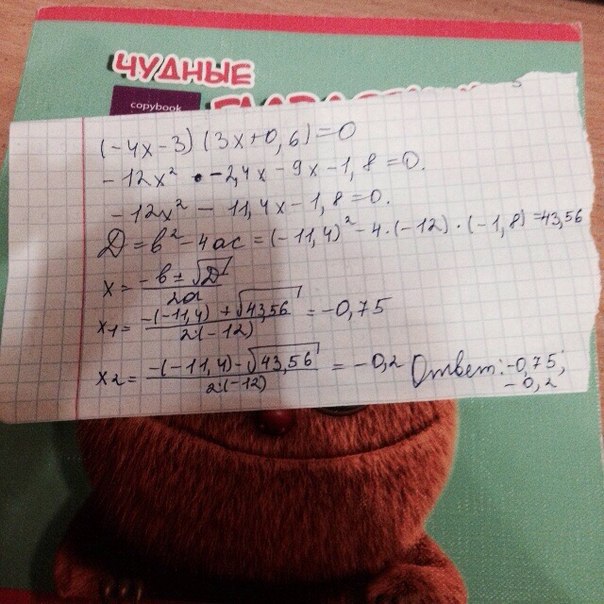 ЧУДНЫЕ
copybook
(-4x-3)(3x+0,6)=0
-12x² -2,4x-9x-1,8=0.
-12x²-11,4x-1,8=0.
D=b²-4ac=(-11,4)²-4·(-12)·(-1,8)=43,56
x=(-b±√D)/2a
x₁=(-(-11,4)+√43,56)/(2·(-12))=-0,75
x₂=(-(-11,4)-√43,56)/(2·(-12))=-0,2 Ответ:-0,75;
-0,2